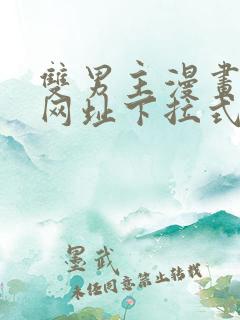 雙男主漫畫
网址下拉式
墨武
未经同意禁止转载